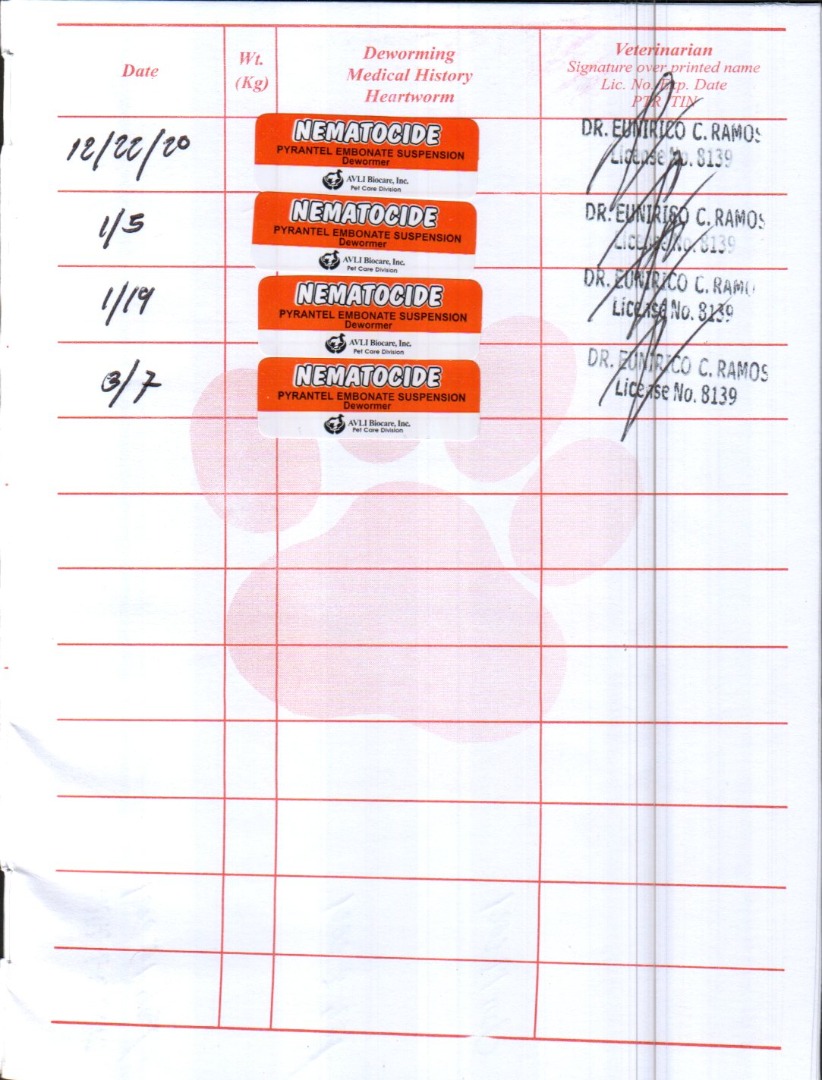 Date
Wt.
(Kg)
Deworming
Medical History
Heartworm
Veterinarian
Signature over printed name
Lic. No. Exp. Date
PTR TIN
12/22/20
NEMATOCIDE
PYRANTEL EMBONATE SUSPENSION
Dewormer
AVLI Biocare, Inc.
Pet Care Division
DR. EUNIRICO C. RAMOS
License No. 8139
1/5
NEMATOCIDE
PYRANTEL EMBONATE SUSPENSION
Dewormer
AVLI Biocare, Inc.
Pet Care Division
DR. EUNIRICO C. RAMOS
License No. 8139
1/19
NEMATOCIDE
PYRANTEL EMBONATE SUSPENSION
Dewormer
AVLI Biocare, Inc.
Pet Care Division
DR. EUNIRICO C. RAMO
License No. 8139
3/7
NEMATOCIDE
PYRANTEL EMBONATE SUSPENSION
Dewormer
AVLI Biocare, Inc.
Pet Care Division
DR. EUNIRICO C. RAMOS
License No. 8139